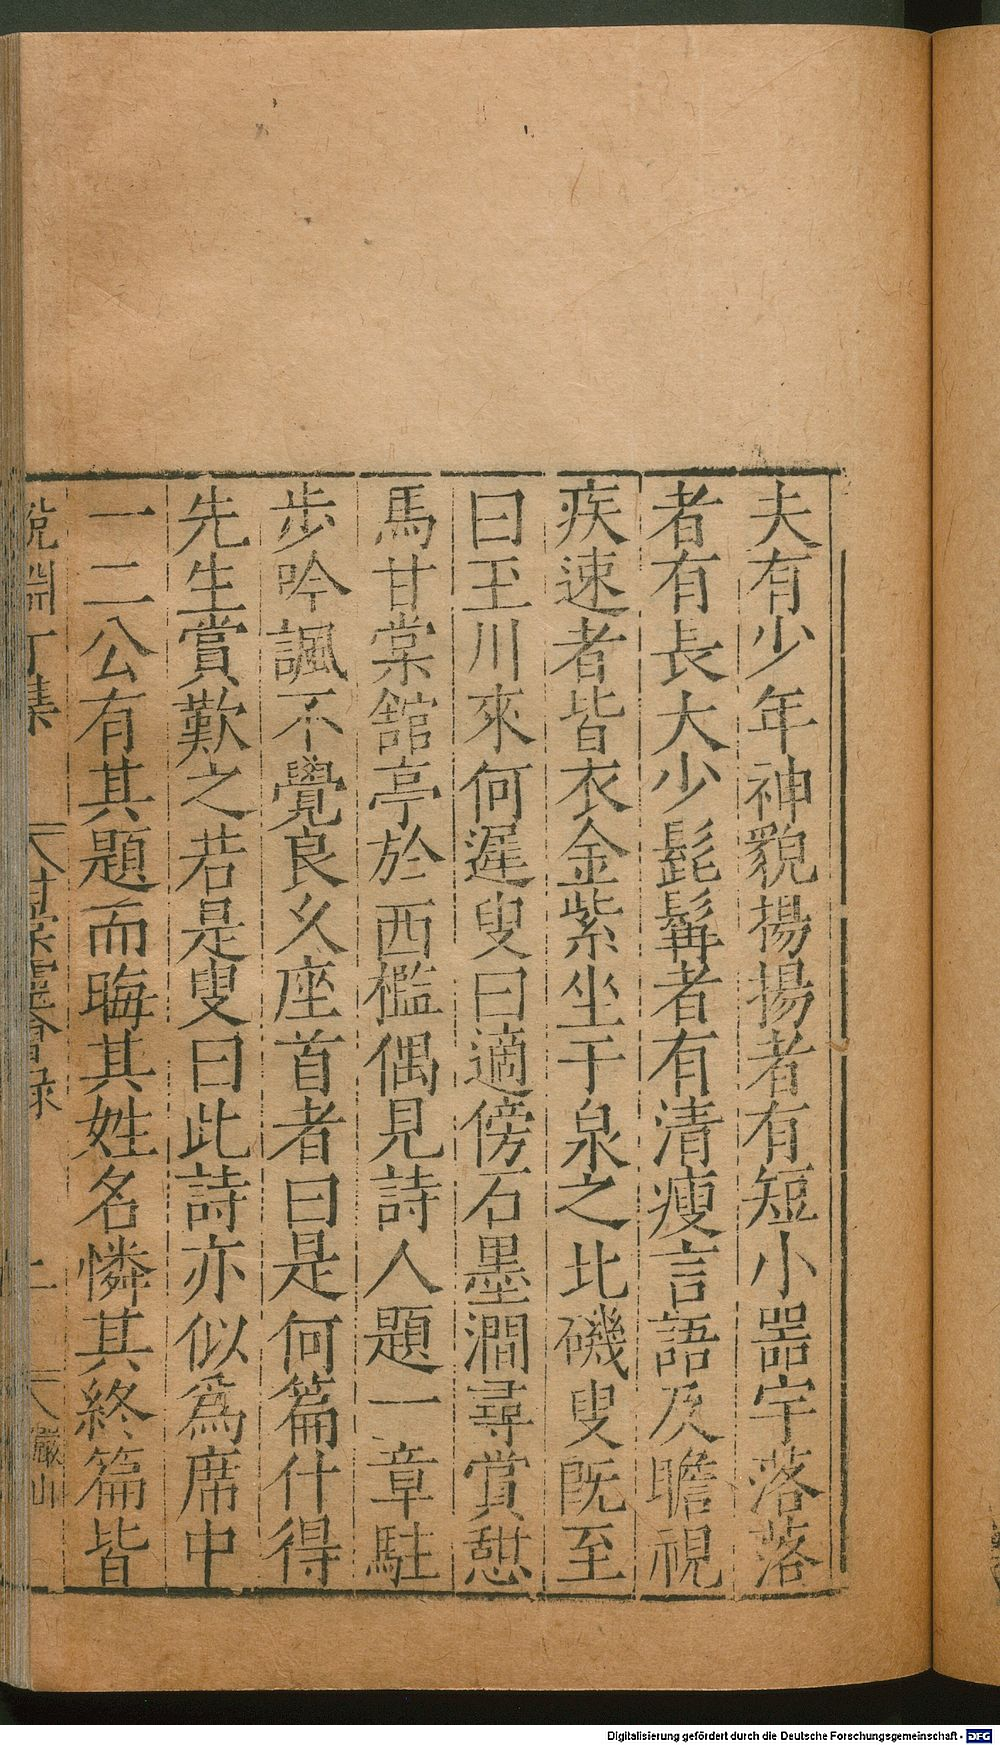 夫有少年神貌揚揚者有短小噐宇落落
者有長大少髭髯者有清瘦言語及瞻視
疾速者皆衣金紫坐于泉之北磯叟旣至
曰玉川來何遲叟曰適傍石墨澗尋賞憇
馬甘棠館亭於西檻偶見詩人題一章駐
步吟諷不覺良乆座首者曰是何篇什得
先生賞歎之若是叟曰此詩亦似爲席中
一二公有其題而晦其姓名憐其終篇皆
說淵丁集
Digitalisierung gefördert durch die Deutsche Forschungsgemeinschaft - DFG